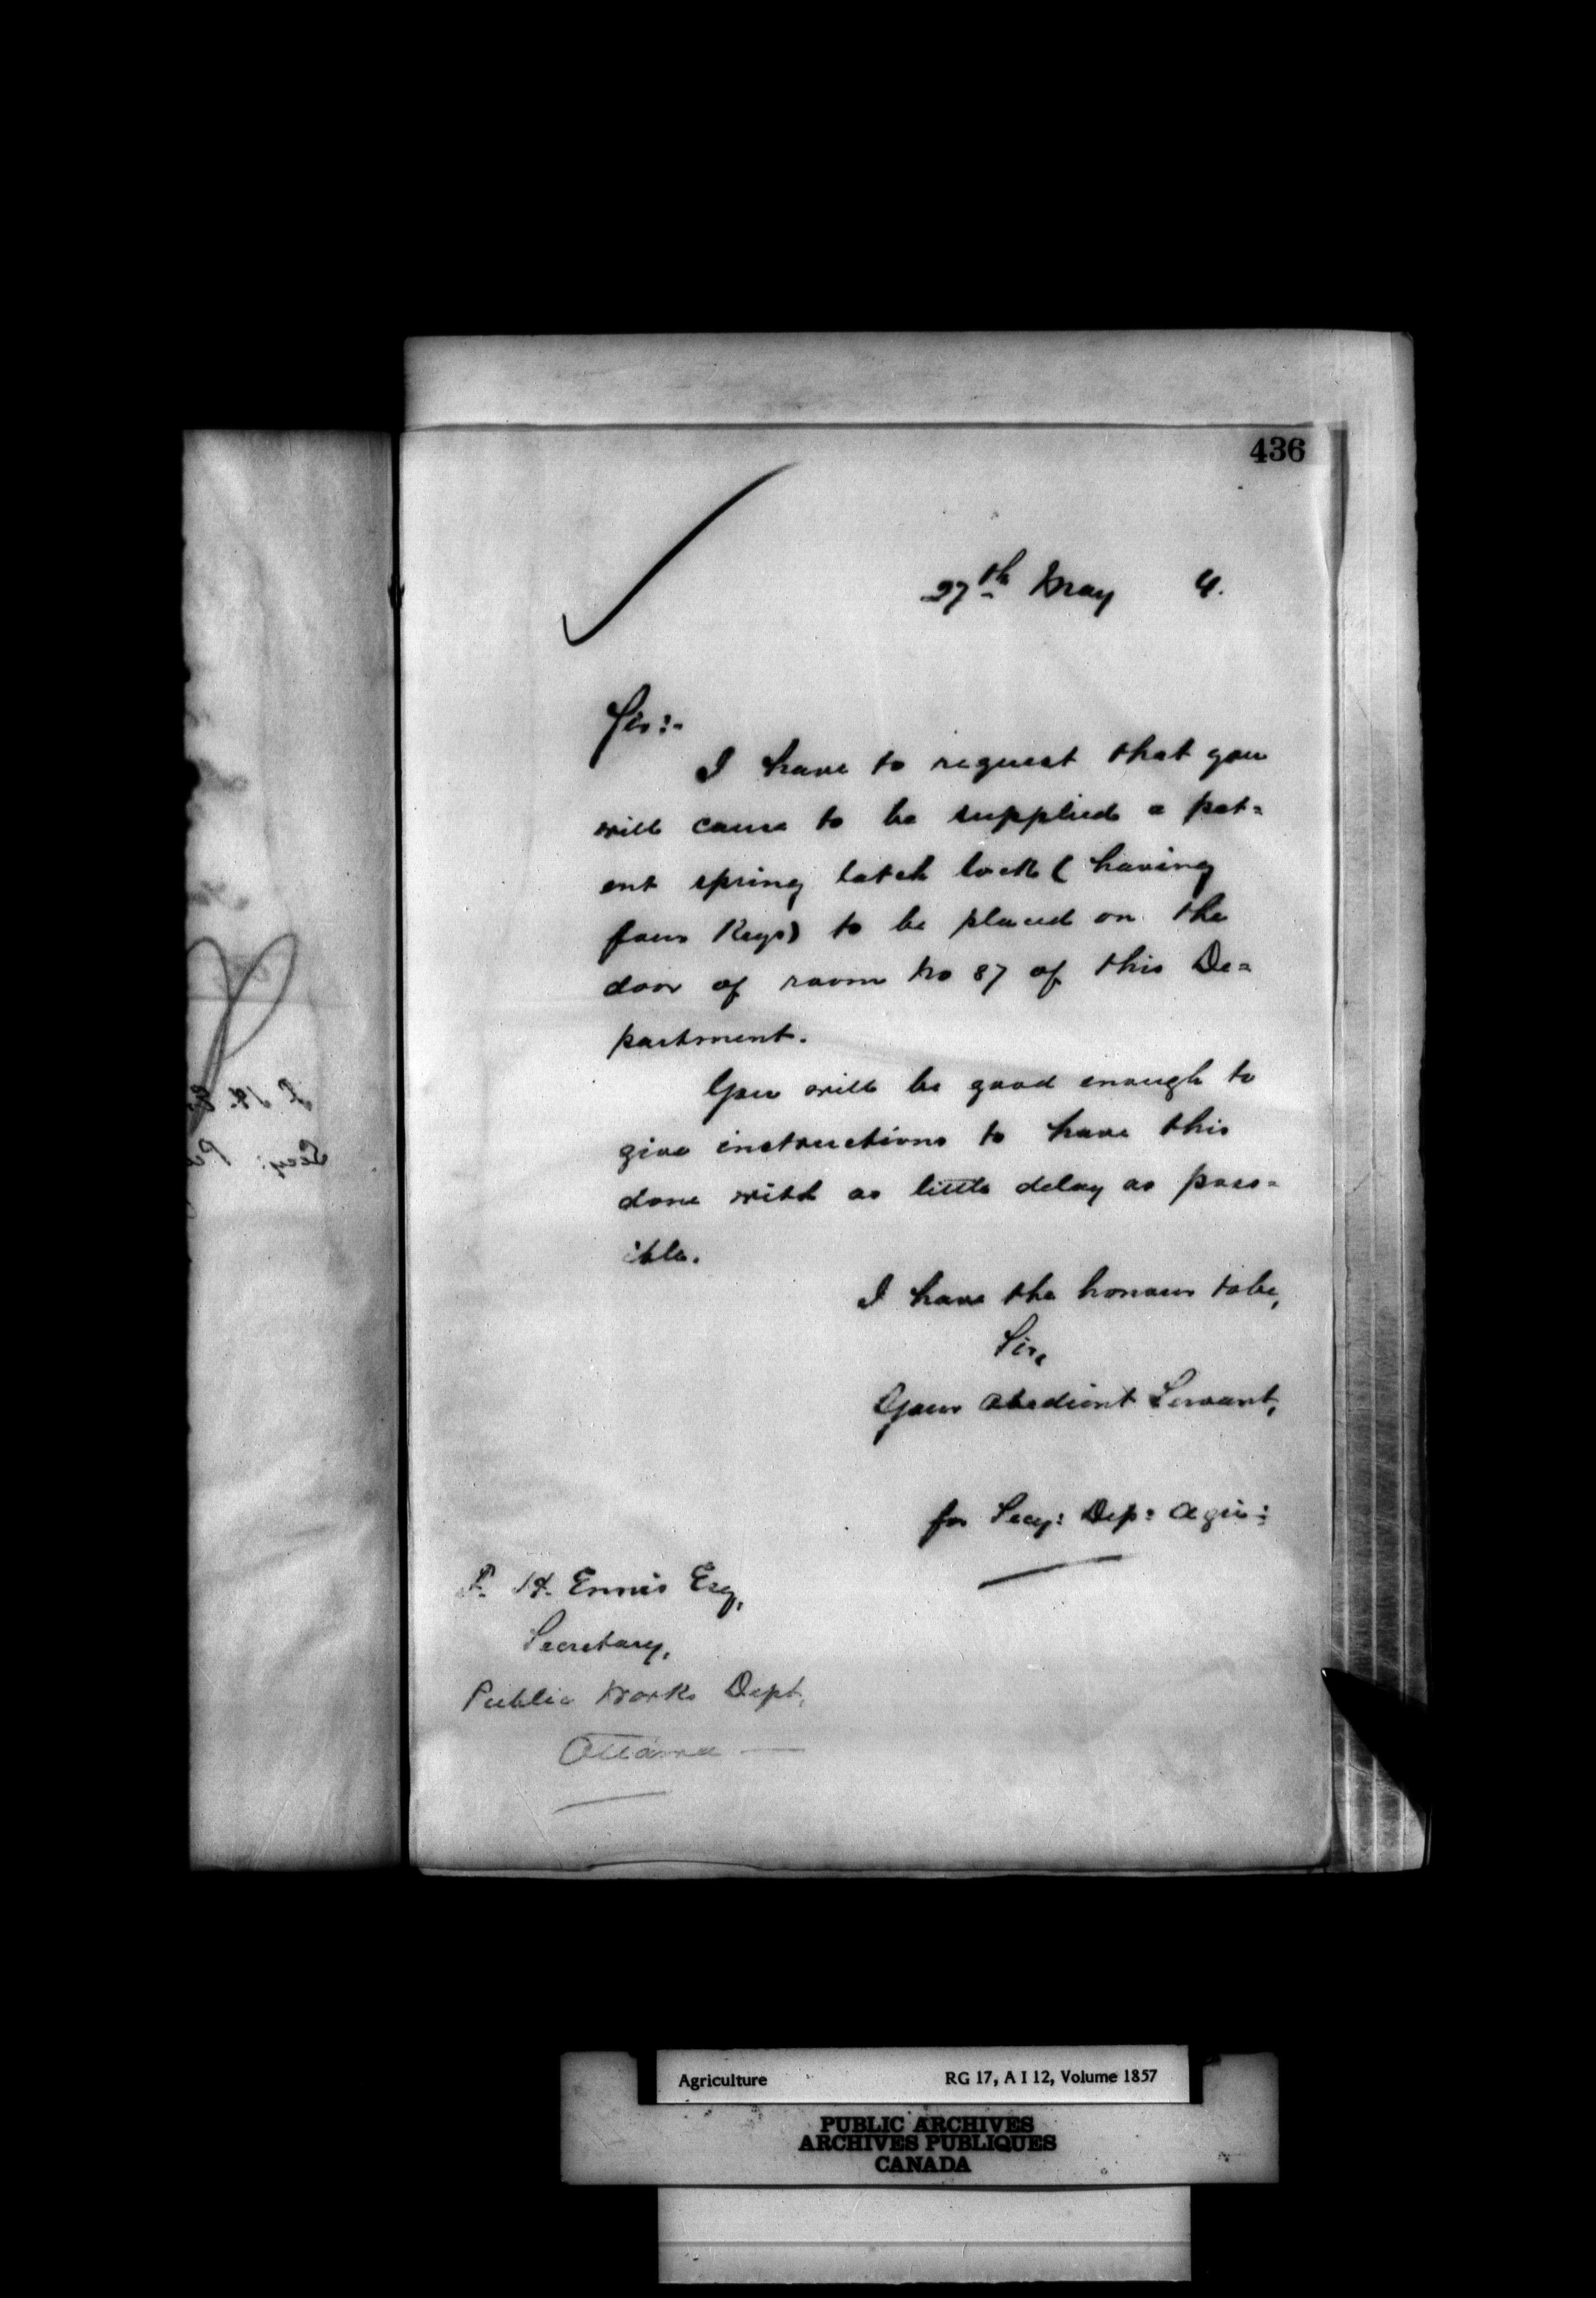 436
27th May 4.
Sir:-
I have to request that you
will cause to be supplied a pat=
ent spring latch lock (having
four Keys) to be placed on the
door of room No 87 of this De=
partment.
You will be good enough to
give instructions to have this
done with as little delay as poss=
ible.
I have the honour to be,
Sir,
Your Obedient Servant,
for Secy: Dep: Agri:
F. H. Ennis Esq,
Secretary,
Public Works Dept,
Ottawa
Agriculture RG 17, A I 12, Volume 1857
PUBLIC ARCHIVES
ARCHIVES PUBLIQUES
CANADA